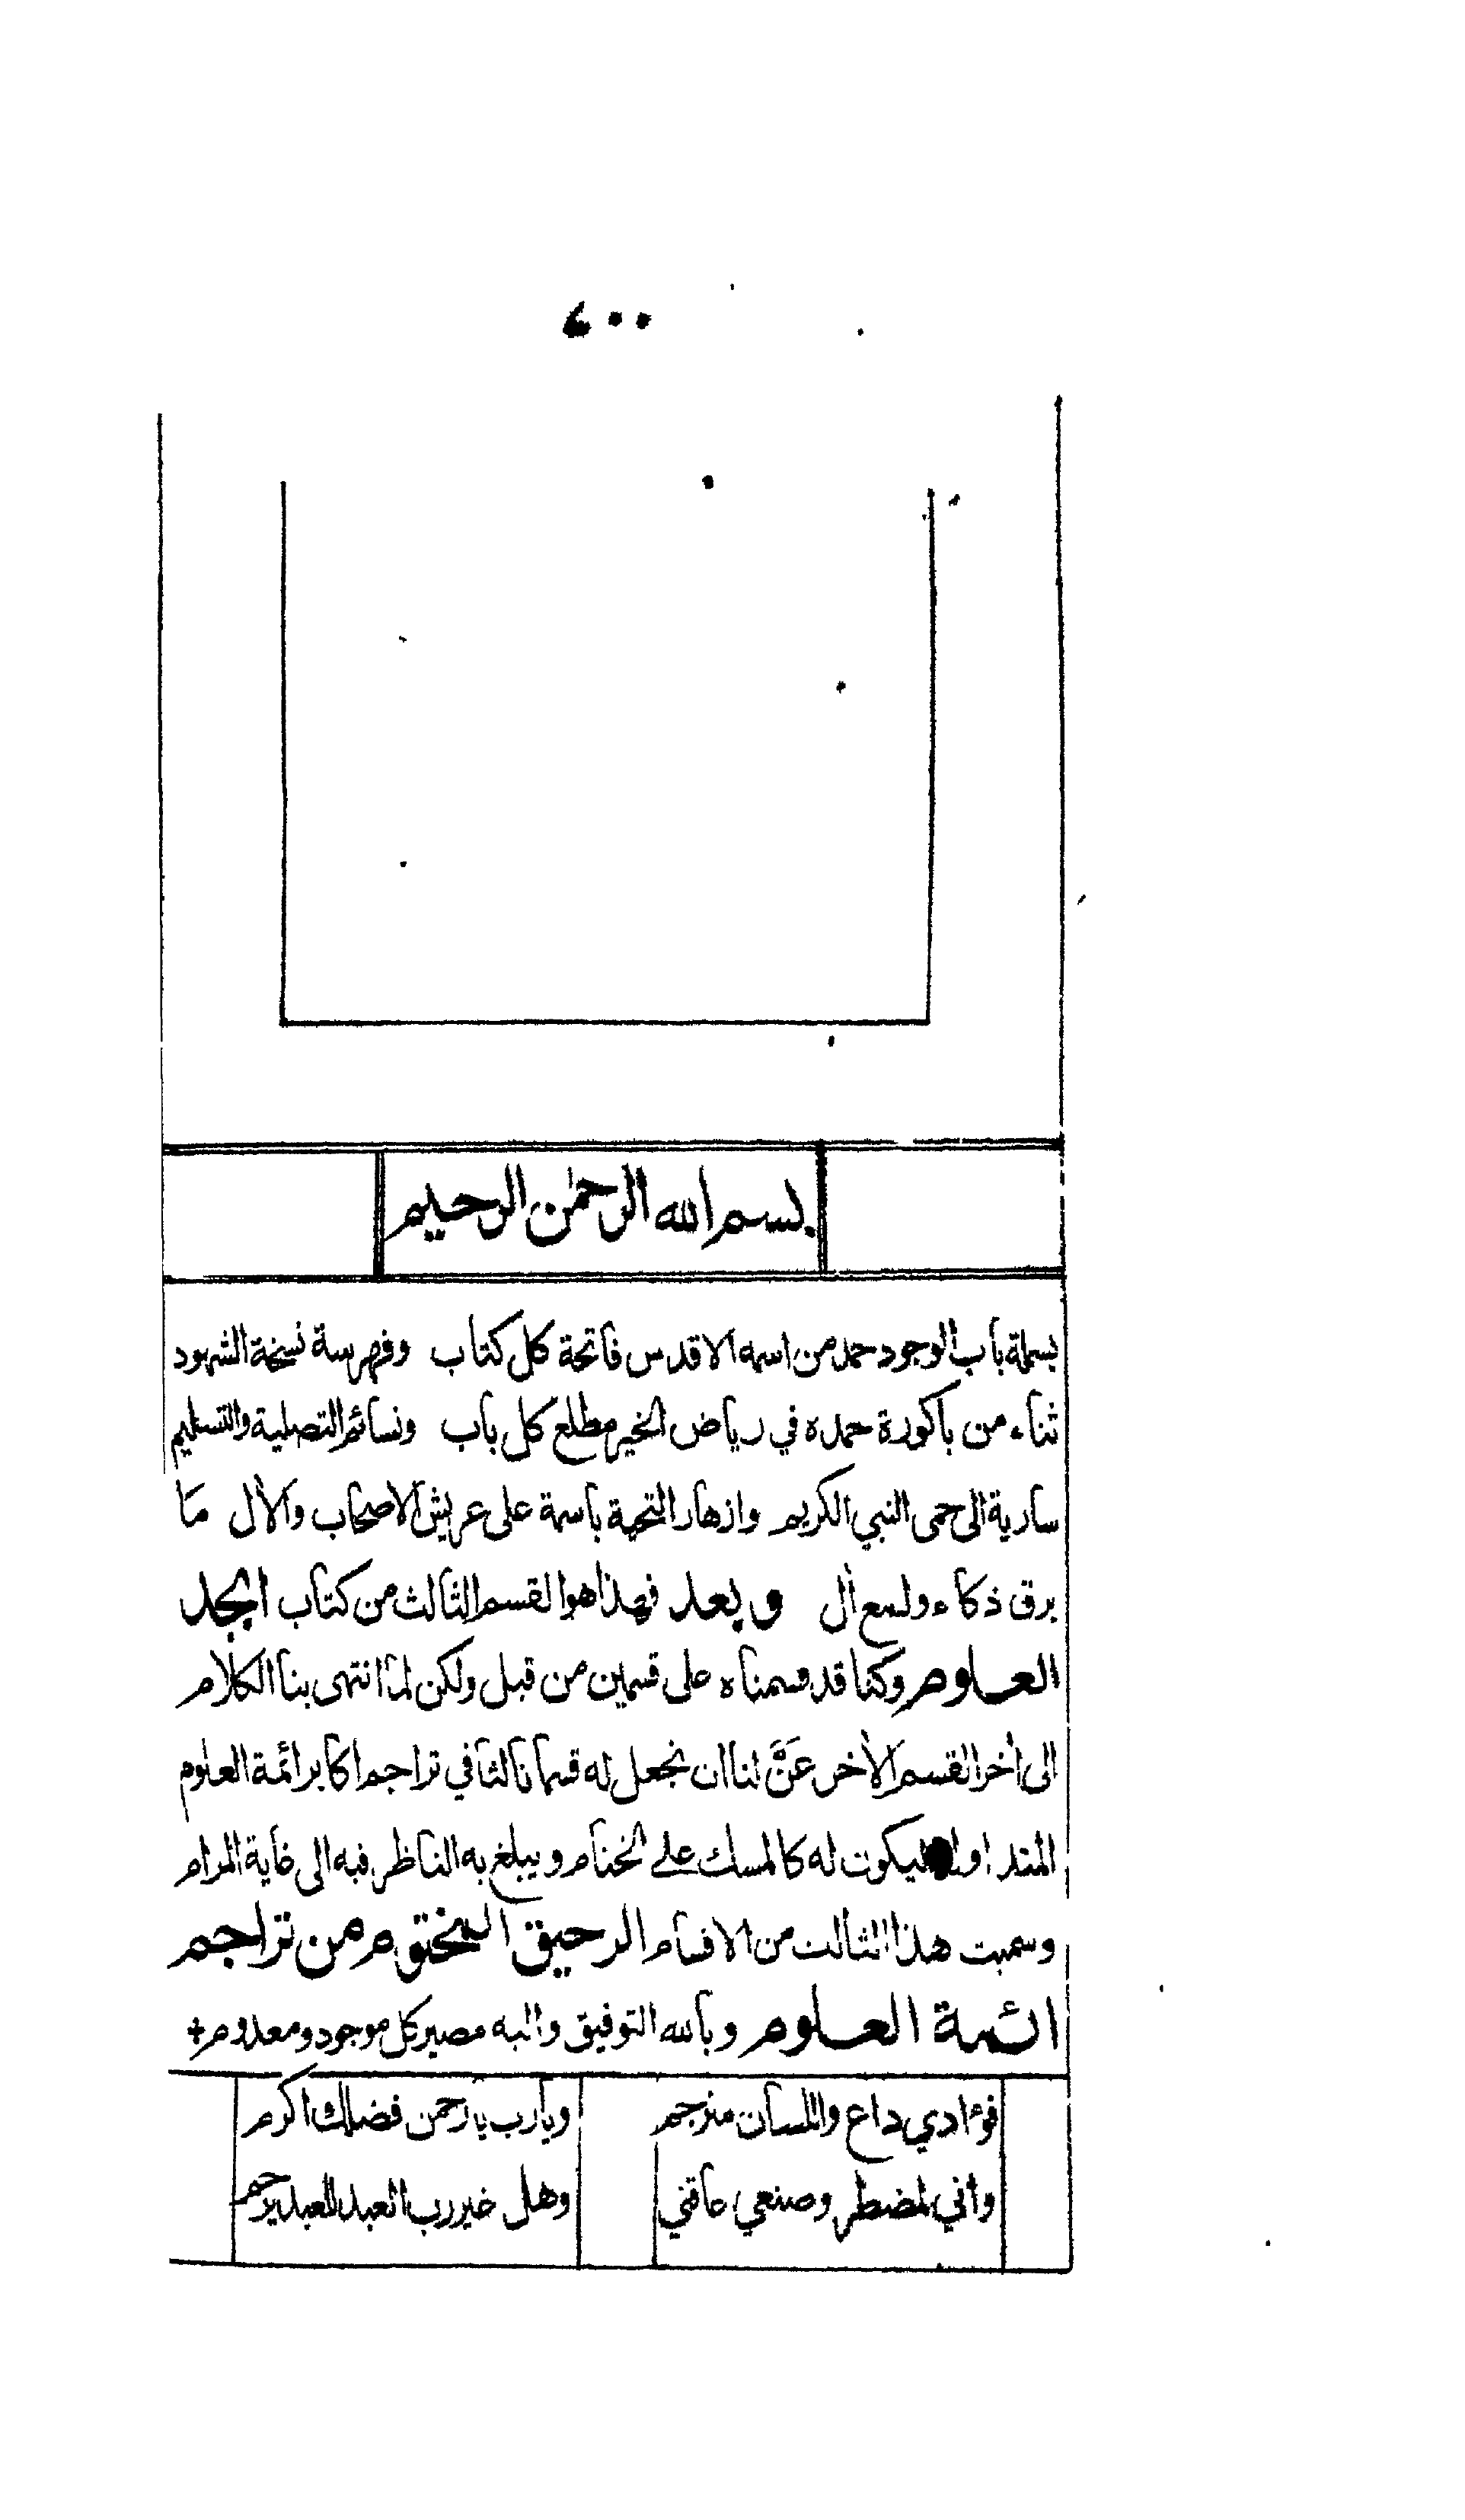 بسم الله الرحمٰن الرحيم
بسملة باب الوجود حمد من اسمه الاقدس فاتحة كل كتاب وفهرسة نسخة الشهود
ثناء من باكورة حمده في رياض الخير مطلع كل باب ونسائم التصلية والتسليم
سارية الى حمى النبي الكريم وازهار التحية باسمة على عريش الاصحاب والأل مَا
برق ذكاء ولمع أل وبعد فهذا هو القسم الثالث من كتاب ابجد
العلوم وكنا قد قسمناه على قسمين من قبل ولكن لمّا انتهى بنا الكلام
الى أخر القسم الأخر عَنَّ لنا ان نجعل له قسما ثالثا في تراجم اكابر ائمة العلوم
المتداولة ليكون له كالمسك على الختام ويبلغ به الناظر فيه الى غاية المرام
وسميت هذا الثالث من الاقسام الرحيق المختوم من تراجم
ائمة العلوم وبالله التوفيق واليه مصير كل موجود ومعدوم +
فؤادي داع واللسان مترجم ويارب يا رحمن فضلك اكرم
واني لمضطر وصنعي عاقني وهل غير رب العبد للعبد يرحم